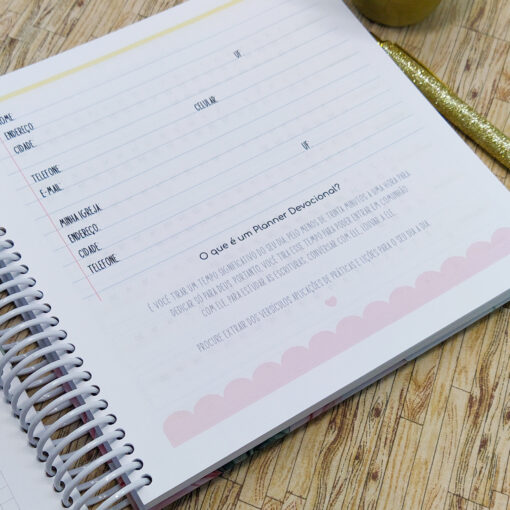 NOME
ENDEREÇO UF
CIDADE CELULAR
TELEFONE
E-MAIL
MINHA IGREJA
ENDEREÇO UF
CIDADE
TELEFONE
O que é um Planner Devocional?
É VOCÊ TIRAR UM TEMPO SIGNIFICATIVO DO SEU DIA, PELO MENOS DE TRINTA MINUTOS A UMA HORA PARA
DEDICAR SÓ PARA DEUS. PORTANTO, VOCÊ TIRA ESSE TEMPO PARA PODER ENTRAR EM COMUNHÃO
COM ELE, PARA ESTUDAR AS ESCRITURAS, CONVERSAR COM ELE, OUVIR A ELE.
PROCURE EXTRAIR DOS VERSÍCULOS APLICAÇÕES DE PRÁTICAS E LIÇÕES PARA O SEU DIA A DIA